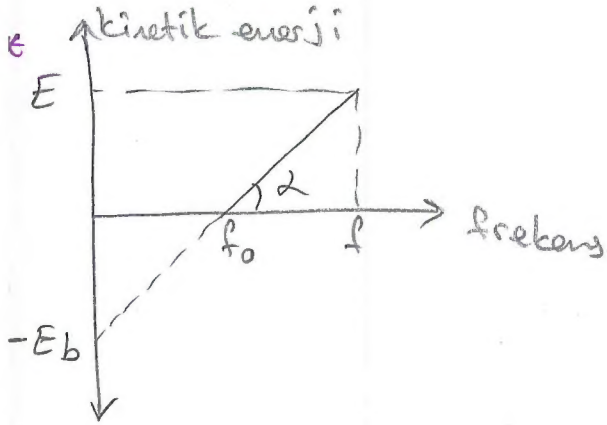 ε kinetik enerji
E
α
f₀ f frekans
-Eb